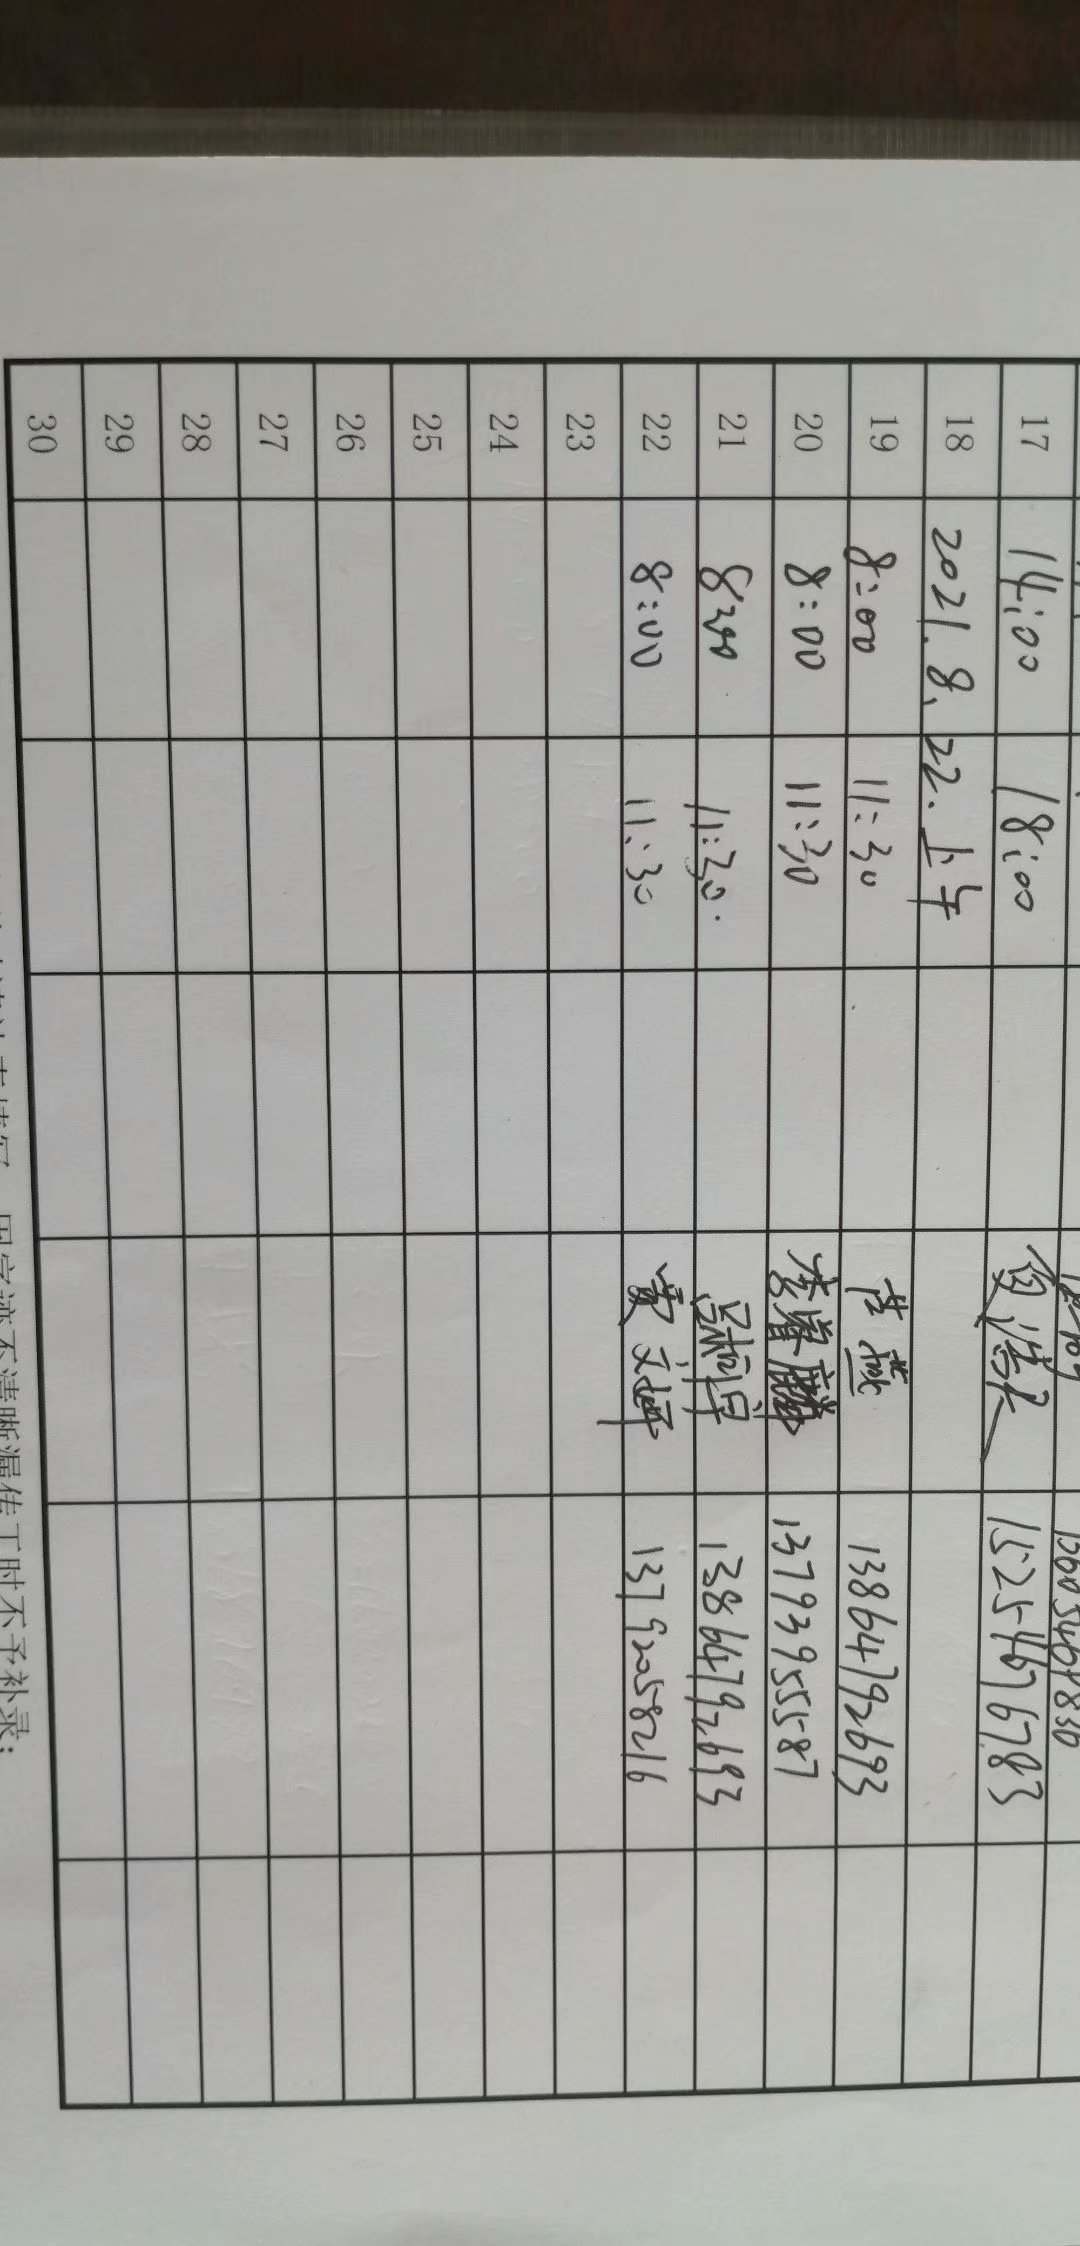 17 14:00 18:00 15254676783
18 2021.8.22.上午
19 8:00 11:30 苦燕 13864792693
20 8:00 11:30 李睿麟 13793955587
21 8:00 11:30. 13864792693
22 8:00 11:30 黄文婷 13792058216
23
24
25
26
27
28
29
30
因字迹不清晰漏传工时不予补录;